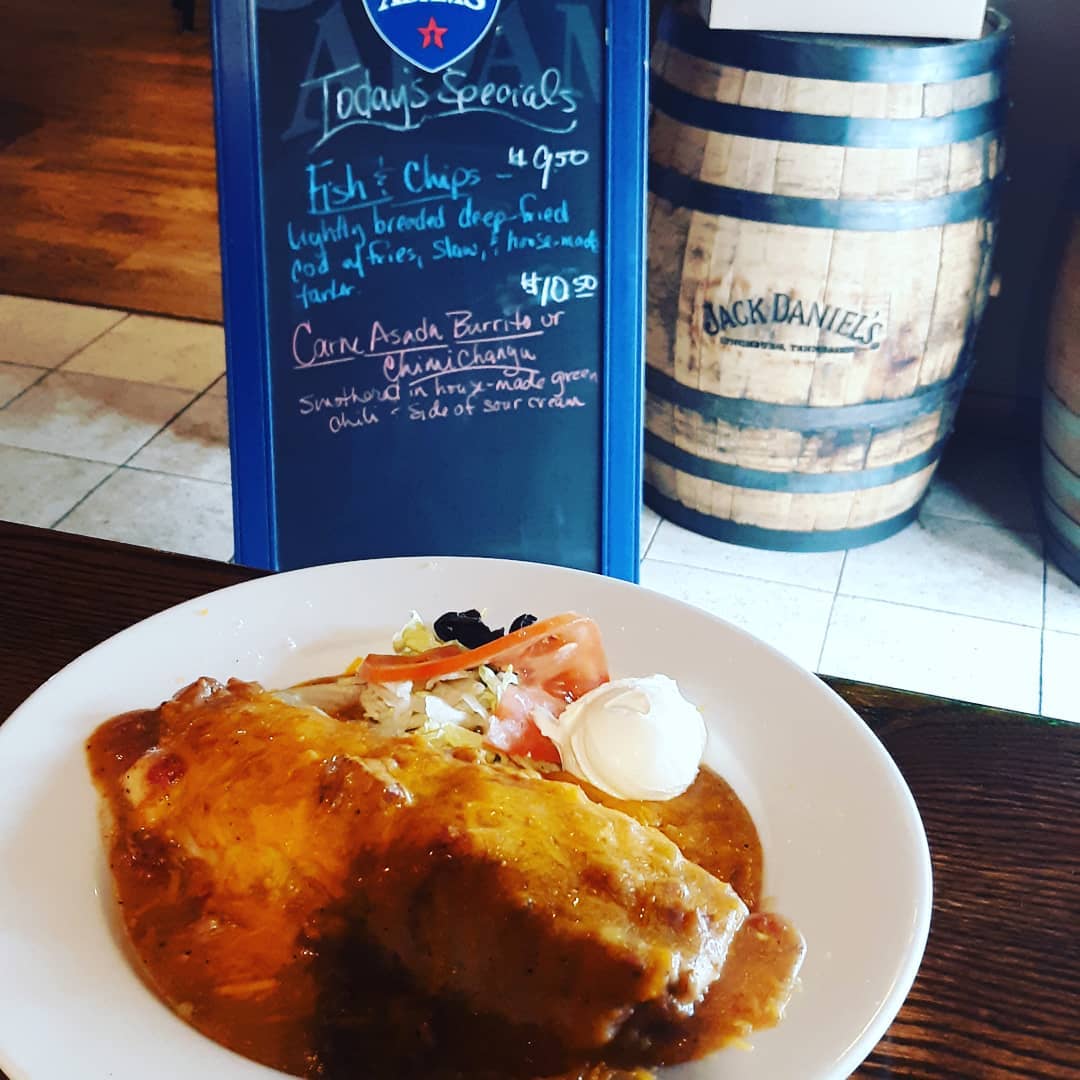 ADAMS
Today's Specials
Fish & Chips - $9.50
Lightly breaded deep-fried
cod w/fries, slaw, & house-made
tarter.
$10.50
Carne Asada Burrito or
ChimiChanga
smothered in house-made green
chili - side of sour cream
JACK DANIEL'S
LYNCHBURG, TENNESSEE